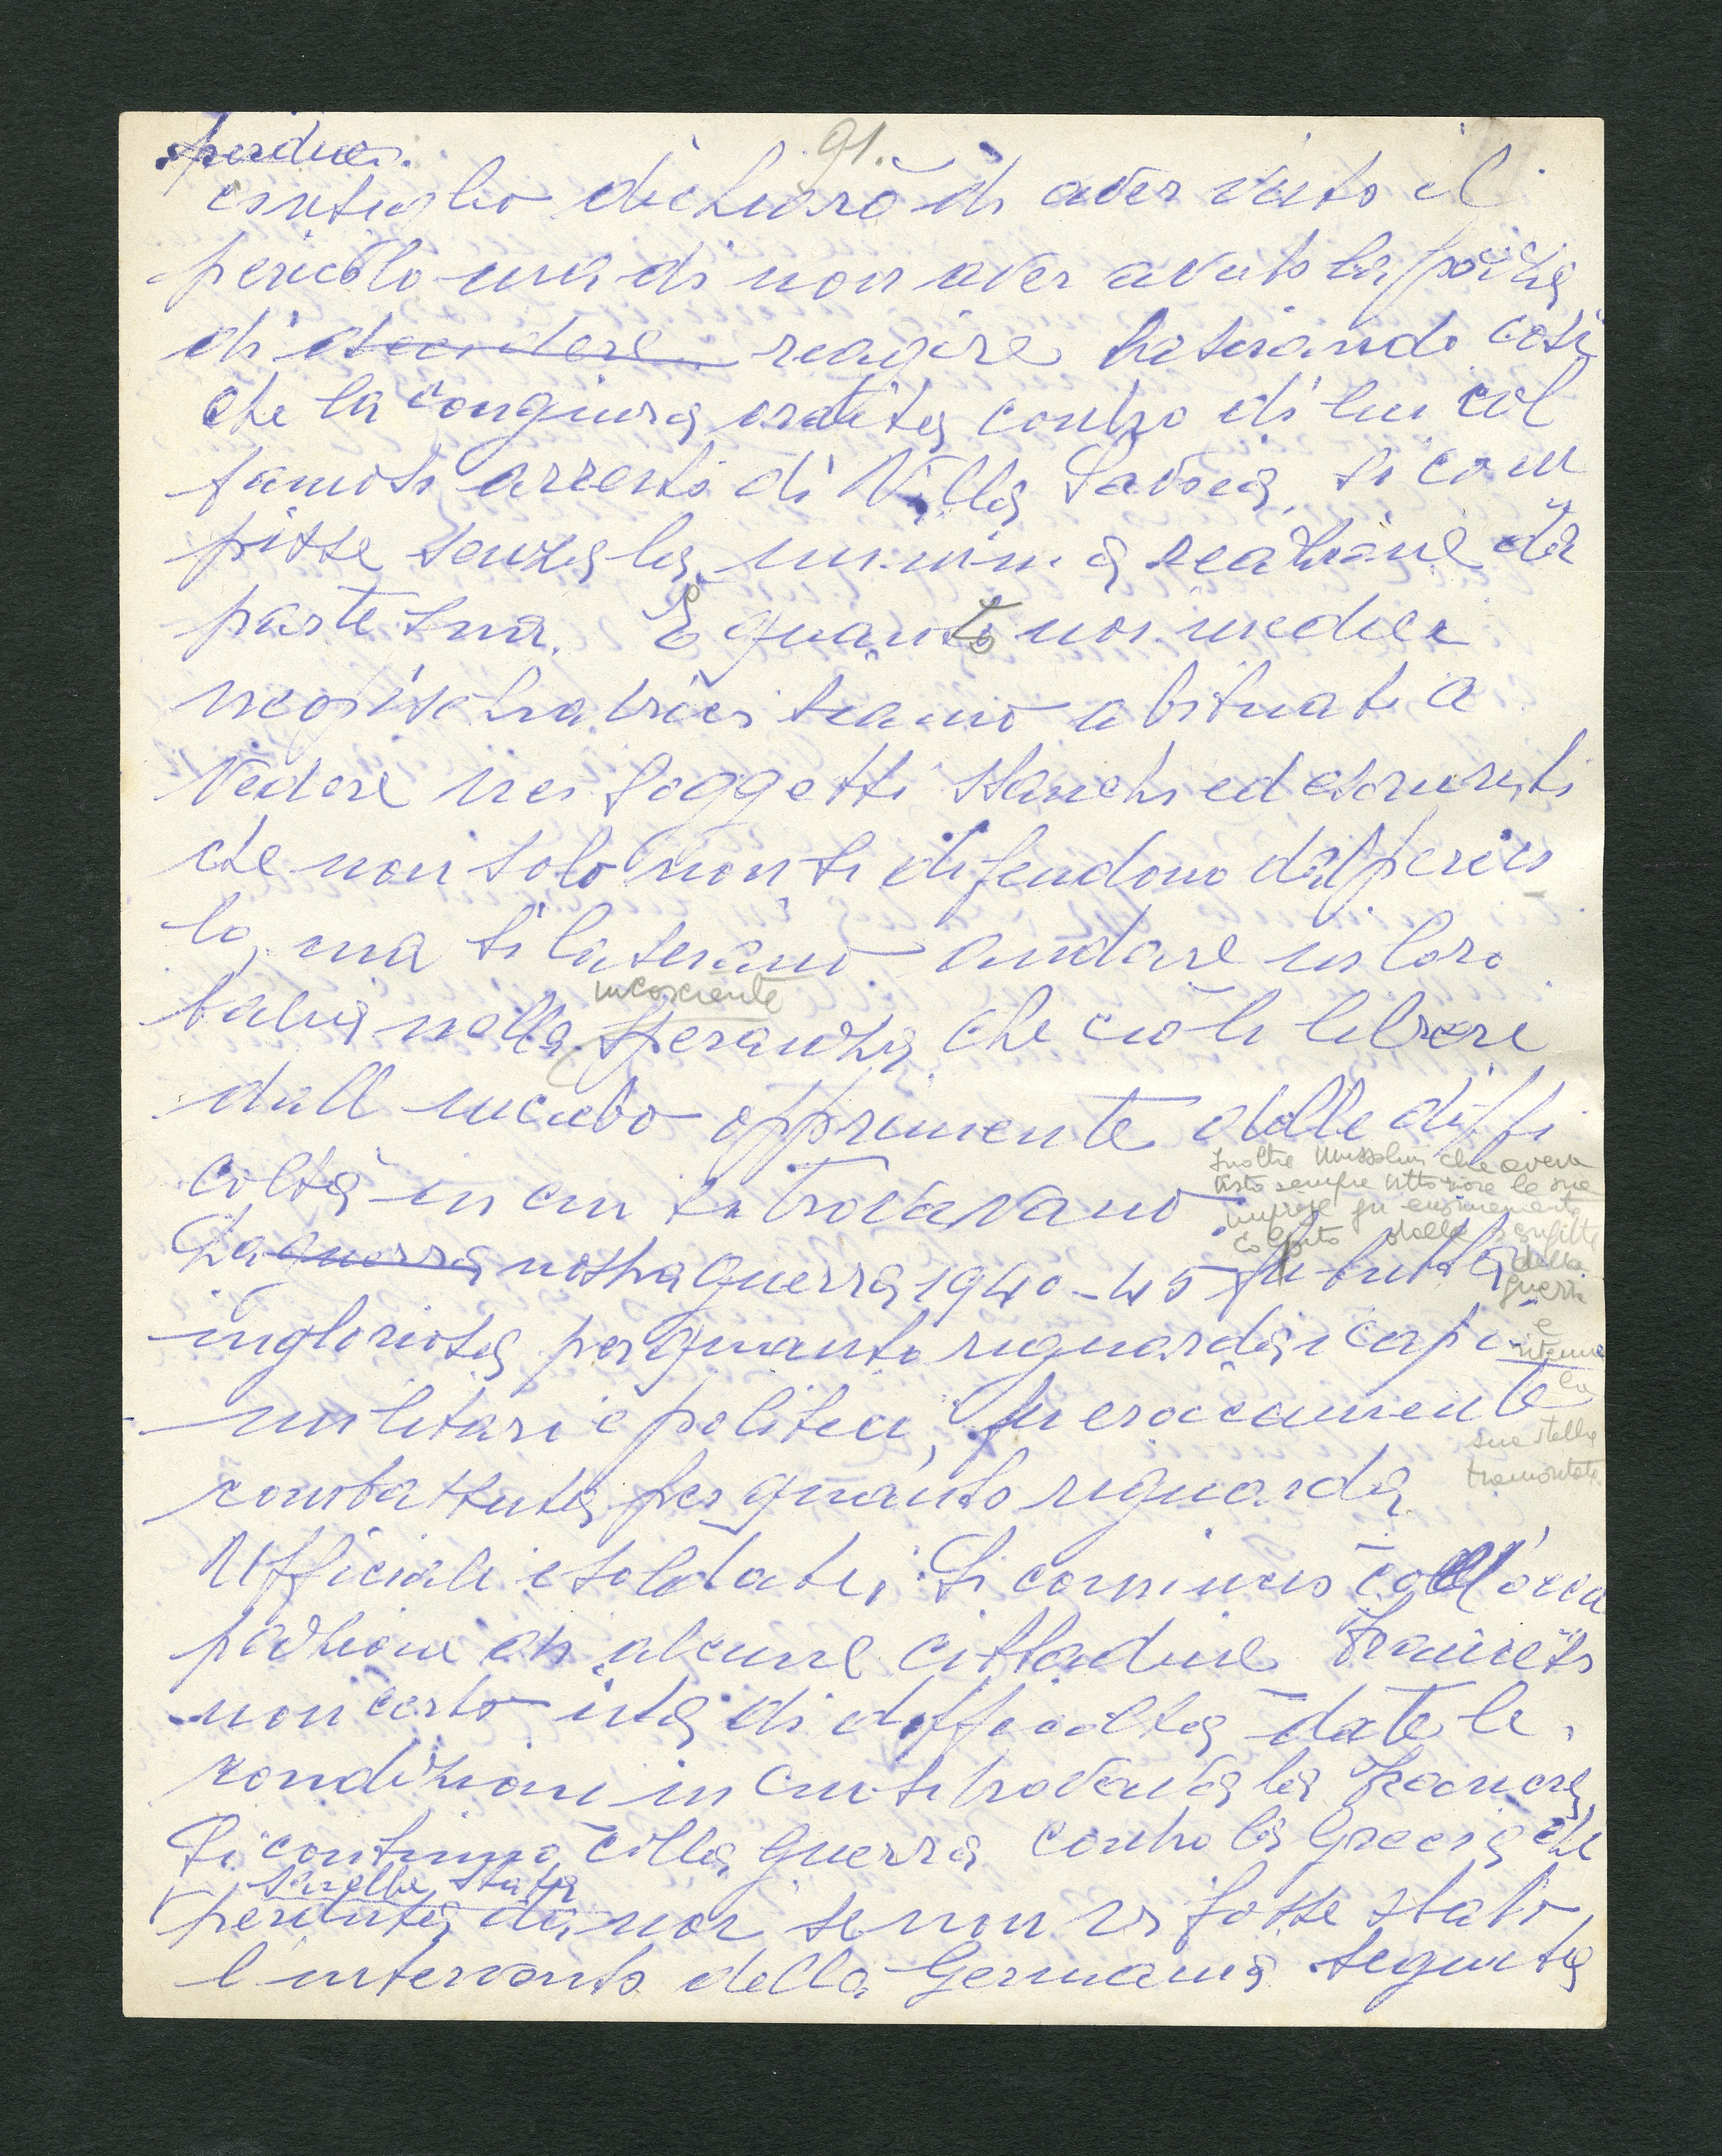 91.
consiglio dichiarò di aver visto il
pericolo ma di non aver avuto la forza
di decidere reagire lasciando così
che la congiura ordita contro di lui col
famoso arresto di Villa Savoia, si com
pisse senza la minima reazione da
parte sua. È quanto noi medici
neopischiatrici siamo abituati a
vedere nei soggetti stanchi ed esauriti
che non solo non si difendono dal perico
lo, ma si lasciano andare in loro
incosciente
balia nella speranza che ciò li liberi
dall incubo opprimente delle diffi
coltà in cui si trovavano.
Inoltre Mussolini che aveva
visto sempre vittoriose le sue
imprese fu enormemente
colpito dalle sconfitte
della
guerra
e
ritenne
la
sua stella
tramontata
La guerra nostra guerra 1940-45 fu tutta
ingloriosa per quanto riguarda i capi
militari e politici, fu eroicamente
combattuta per quanto riguarda
Ufficiali e soldati. Si cominciò coll'occu
pazione di alcune cittadine francesi
non certo irta di difficoltà date le
condizioni in cui si trovava la Francia,
Si continuò colla guerra contro la Grecia che
sarebbe stata
perduta da noi se non vi fosse stato
l'intervento della Germania seguita